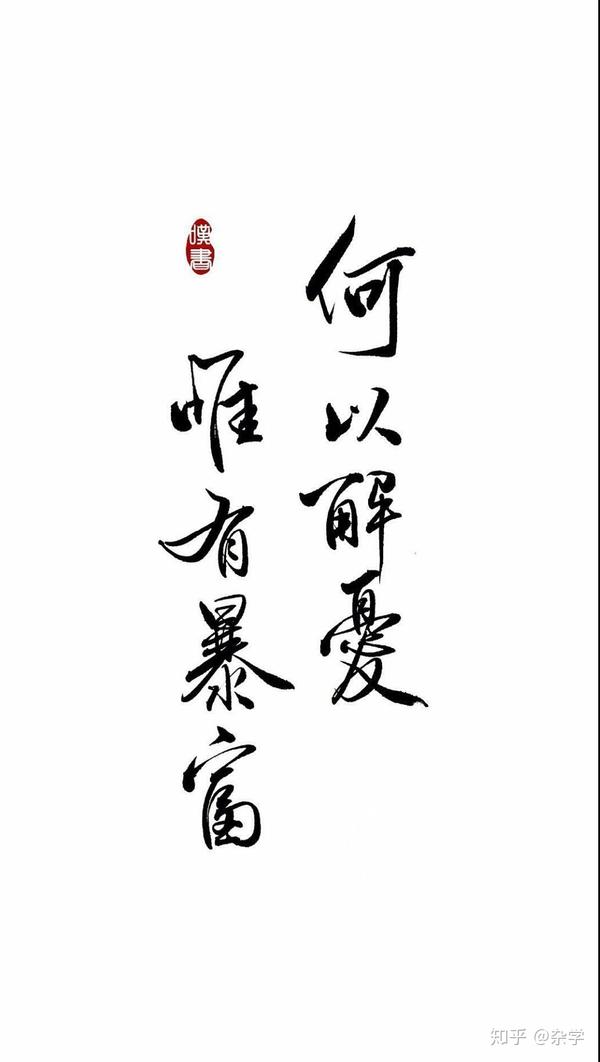 何以解憂
惟有暴富
嘆書
知乎 @杂学